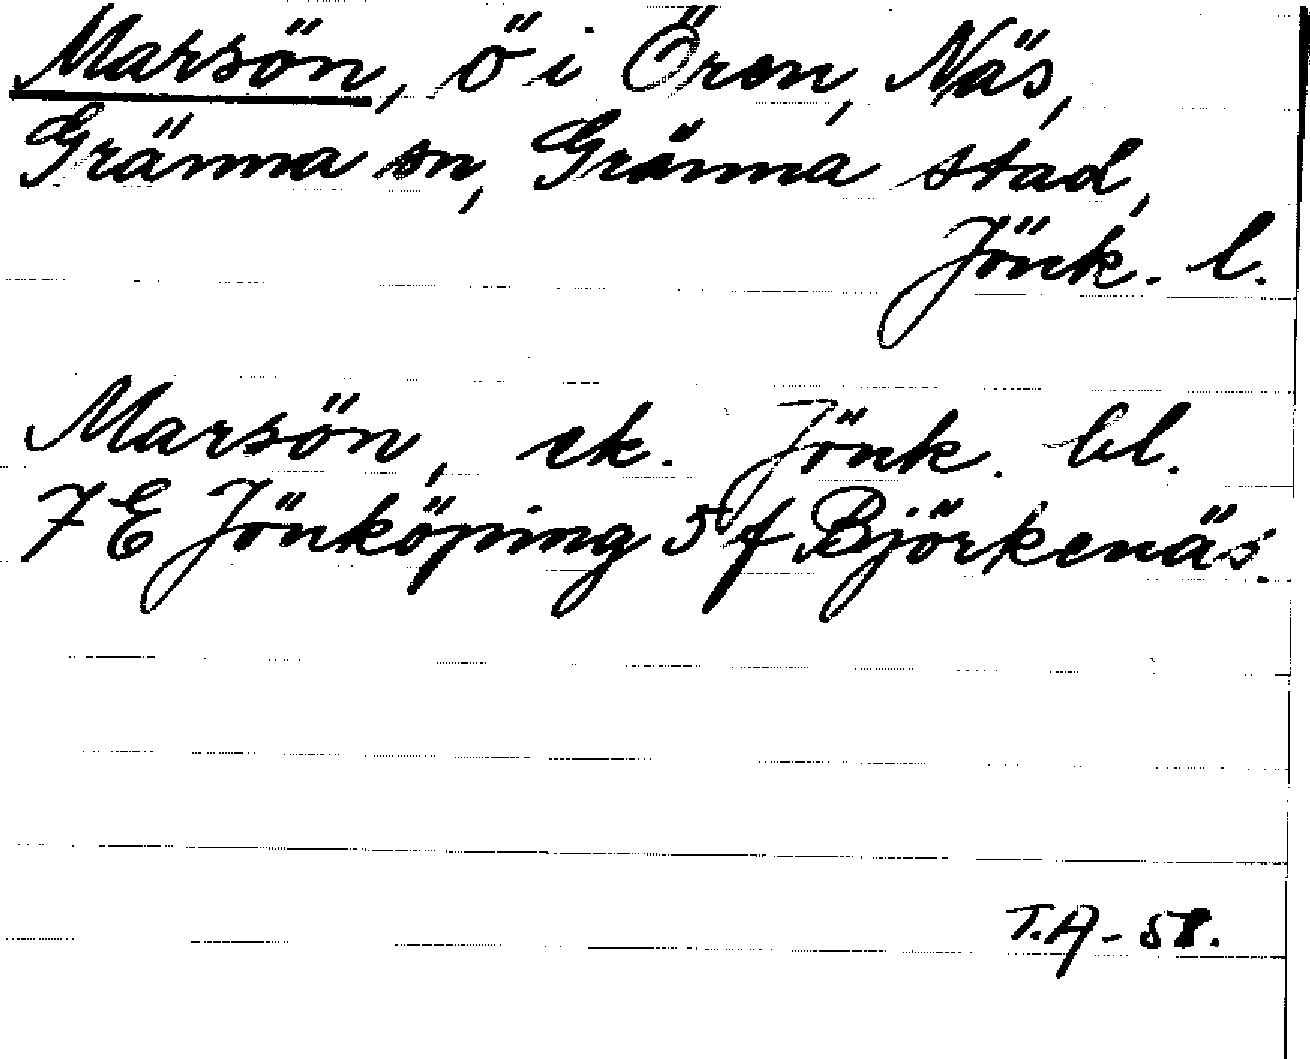 Marsön, ö i Ören, Näs,
Gränna sn, Gränna stad,
Jönk. l.
Marsön, ek. Jönk. bl.
7 E Jönköping 5 f Björkenäs.
T.A - 58.